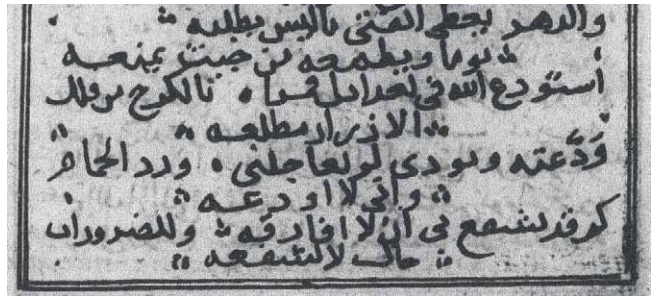 والدهر يعطى الفتى ماليس يطلبه
يوما ويطمعه من حيث يمنعه
استودع الله فى بغداد لى قمرا بالكرخ من فلك
الازرار مطلعه
وَدَّعته وبودى لو يعاجلنى ورد الحمام
وانى لا اودعه
كم قد تشفع بى ان لا افارقه وللضرورات
حال لا تشفعه